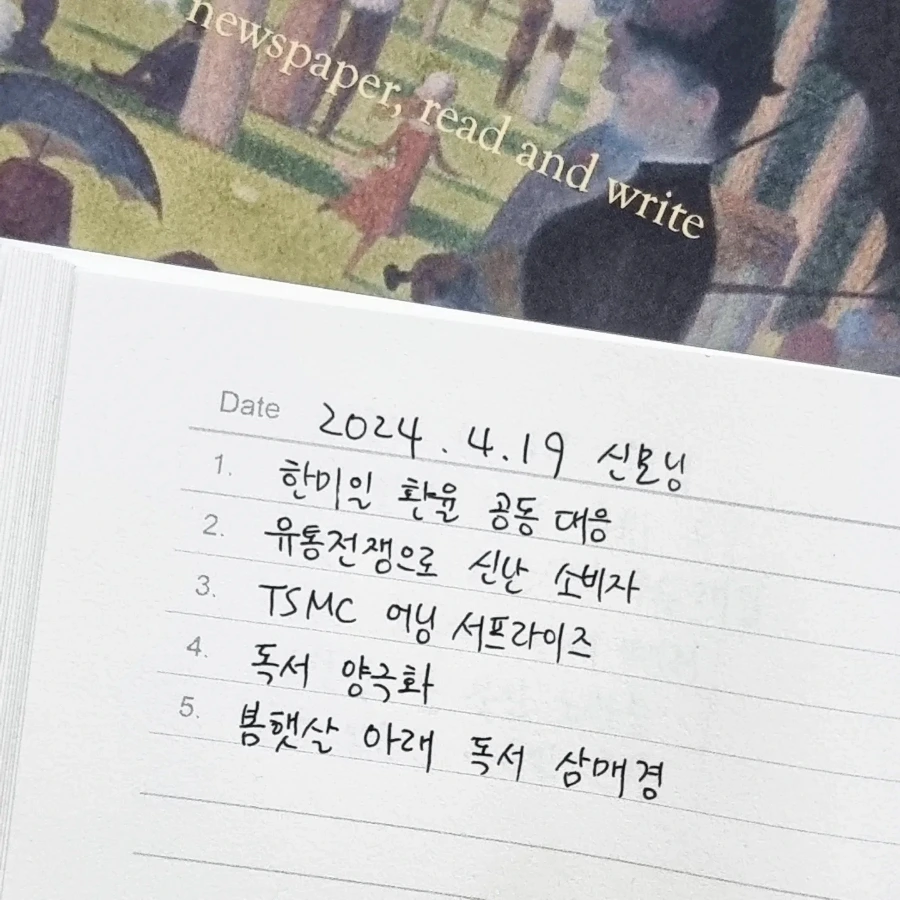 newspaper, read and write
Date 2024.4.19 신모닝
1. 한미일 환율 공동 대응
2. 유통전쟁으로 신난 소비자
3. TSMC 어닝 서프라이즈
4. 독서 양극화
5. 봄햇살 아래 독서 삼매경